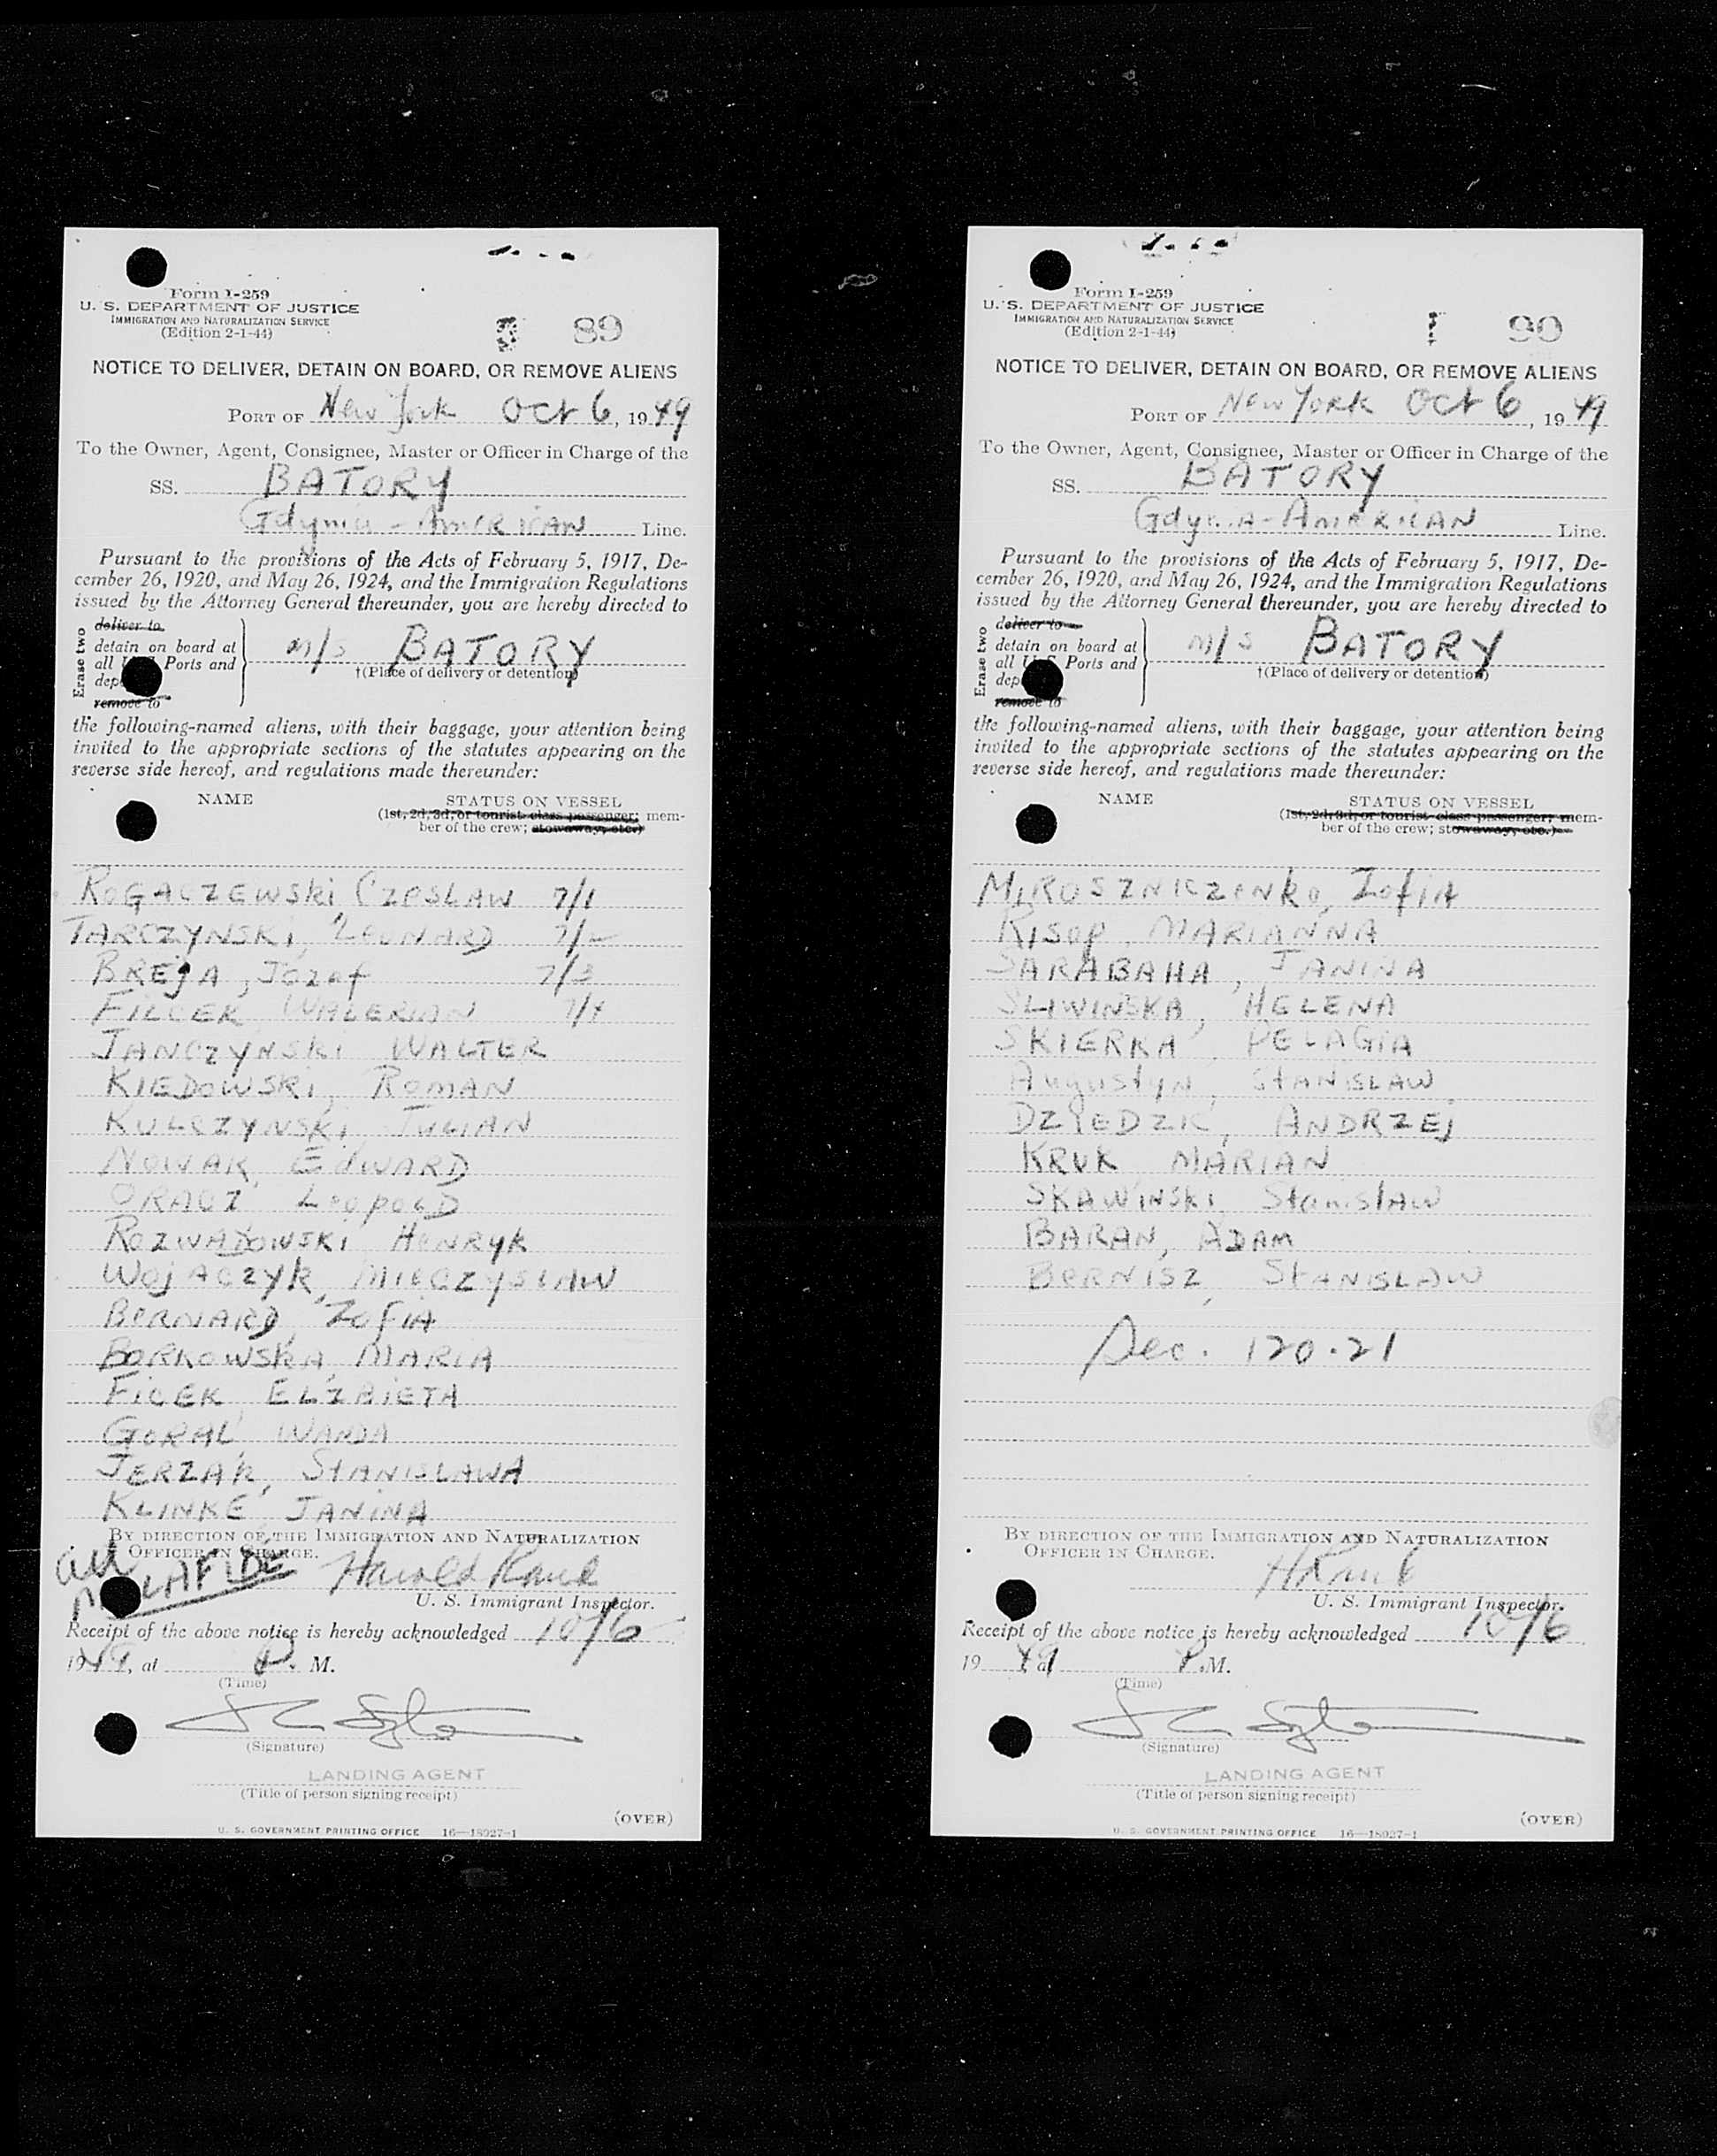 Form I-259
U. S. DEPARTMENT OF JUSTICE
IMMIGRATION AND NATURALIZATION SERVICE
(Edition 2-1-44)
89
NOTICE TO DELIVER, DETAIN ON BOARD, OR REMOVE ALIENS
PORT OF New York Oct 6, 1949
To the Owner, Agent, Consignee, Master or Officer in Charge of the
SS. BATORY
Gdynia - AMERICAN Line.
Pursuant to the provisions of the Acts of February 5, 1917, De-
cember 26, 1920, and May 26, 1924, and the Immigration Regulations
issued by the Attorney General thereunder, you are hereby directed to
Erase two
deliver to
detain on board at
all Ports and
dep
remove to
m/s BATORY
†(Place of delivery or detention)
the following-named aliens, with their baggage, your attention being
invited to the appropriate sections of the statutes appearing on the
reverse side hereof, and regulations made thereunder:
NAME STATUS ON VESSEL
(1st, 2d, 3d, or tourist class passenger; mem-
ber of the crew; stowaway, etc.)
ROGACZEWSKI, CZESLAW 7/1
TARCZYNSKI, LEONARD 7/2
BREJA, Józef 7/3
FILCEK WALERIAN 7/4
JANCZYNSKI WALTER
KIEDOWSKI, ROMAN
KULCZYNSKI, JULIAN
NOWAK, EDWARD
ORACZ LEOPOLD
ROZWADOWSKI HENRYK
WOJACZYK, MIECZYSLAW
BERNARD, ZOFIA
BORKOWSKA, MARIA
FICEK ELZBIETA
GORAL, WANDA
JERZAK, STANISLAWA
KLINKE JANINA
BY DIRECTION OF THE IMMIGRATION AND NATURALIZATION
OFFICER IN CHARGE.
all
MALAFIDE
Harold
U. S. Immigrant Inspector.
Receipt of the above notice is hereby acknowledged 10/6
1949, at P. M.
(Time)
(Signature)
LANDING AGENT
(Title of person signing receipt)
(OVER)
U. S. GOVERNMENT PRINTING OFFICE 16—18027-1
Form I-259
U. S. DEPARTMENT OF JUSTICE
IMMIGRATION AND NATURALIZATION SERVICE
(Edition 2-1-44)
90
NOTICE TO DELIVER, DETAIN ON BOARD, OR REMOVE ALIENS
PORT OF New York Oct 6, 1949
To the Owner, Agent, Consignee, Master or Officer in Charge of the
SS. BATORY
Gdynia-AMERICAN Line.
Pursuant to the provisions of the Acts of February 5, 1917, De-
cember 26, 1920, and May 26, 1924, and the Immigration Regulations
issued by the Attorney General thereunder, you are hereby directed to
Erase two
deliver to
detain on board at
all U S Ports and
dep
remove to
m/s BATORY
†(Place of delivery or detention)
the following-named aliens, with their baggage, your attention being
invited to the appropriate sections of the statutes appearing on the
reverse side hereof, and regulations made thereunder:
NAME STATUS ON VESSEL
(1st, 2d, 3d, or tourist class passenger; mem-
ber of the crew; stowaway, etc.)
MIROSZNICZENKO, ZOFIA
KISOP, MARIANNA
SARABAHA, JANINA
SLIWINSKA, HELENA
SKIERKA, PELAGIA
Augustyn, STANISLAW
DZIEDZIC, ANDRZEJ
KRUK MARIAN
SKAWINSKI Stanislaw
BARAN, ADAM
BERNISZ, STANISLAW
Sec. 120.21
BY DIRECTION OF THE IMMIGRATION AND NATURALIZATION
OFFICER IN CHARGE.
U. S. Immigrant Inspector.
Receipt of the above notice is hereby acknowledged 10/6
1949 at P.M.
(Time)
(Signature)
LANDING AGENT
(Title of person signing receipt)
(OVER)
U. S. GOVERNMENT PRINTING OFFICE 16—18027-1